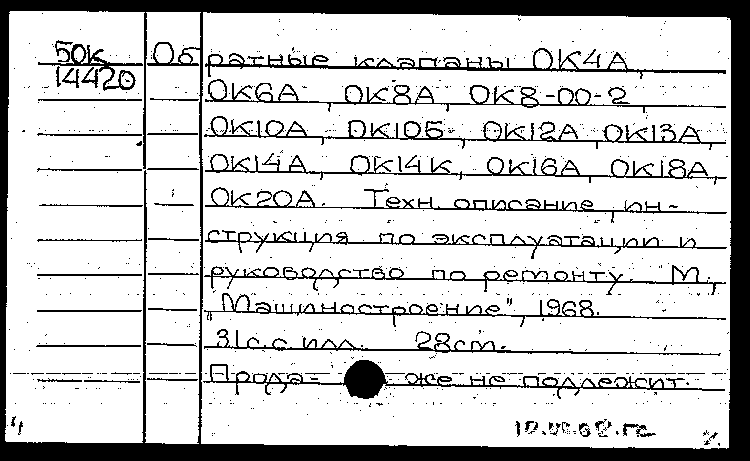 50к Обратные клапаны ОК4А,
14420
ОК6А, ОК8А, ОК8-00-2,
ОК10А, ОК10Б, ОК12А, ОК13А,
ОК14А, ОК14К, ОК16А, ОК18А,
ОК20А. Техн. описание, ин-
струкция по эксплуатации и
руководство по ремонту. М.,
"Машиностроение", 1968.
31с. с илл. 28см.
Прода- же не подлежит.